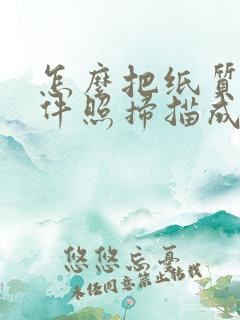 怎麼把纸質
件照扫描成
悠悠忘憂
未经同意禁止转载